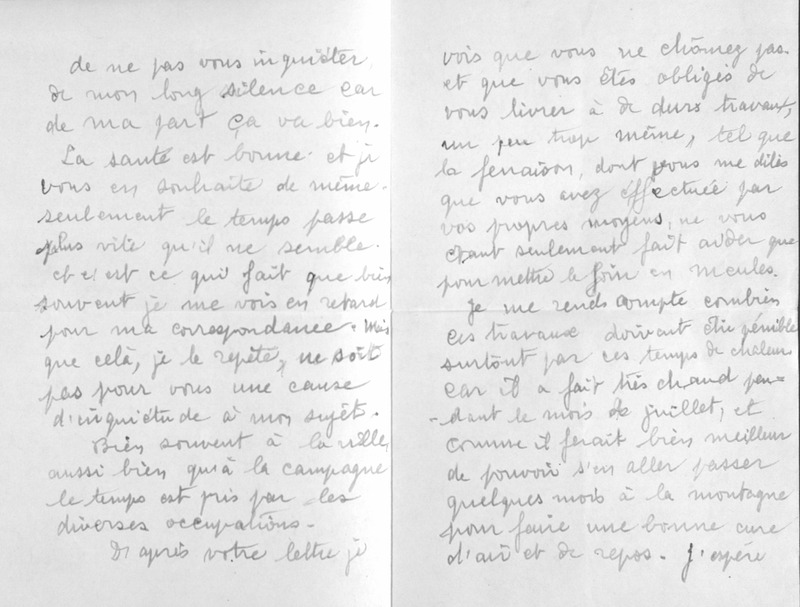 de ne pas vous inquiéter,
de mon long silence car
de ma part ça va bien.
La santé est bonne et je
vous en souhaite de même.
seulement le temps passe
plus vite qu'il ne semble.
et c'est ce qui fait que bien
souvent je me vois en retard
pour ma correspondance. Mais
que celà, je le repète, ne soit
pas pour vous une cause
d'inquiétude à mon sujet.
Bien souvent à la ville,
aussi bien qu'à la campagne
le temps est pris par les
diverses occupations.
D'après votre lettre je
vois que vous ne chômez pas.
et que vous êtes obligés de
vous livrer à de durs travaux,
un peu trop même, tel que
la fenaison, dont vous me dites
que vous avez effectuée par
vos propres moyens, ne vous
étant seulement fait aider que
pour mettre le foin en meules.
Je me rends compte combien
ces travaux doivent être pénible
surtout par ces temps de chaleurs
car il a fait très chaud pen=
-dant le mois de juillet, et
comme il ferait bien meilleur
de pouvoir s'en aller passer
quelques mois à la montagne
pour faire une bonne cure
d'air et de repos. J'espére